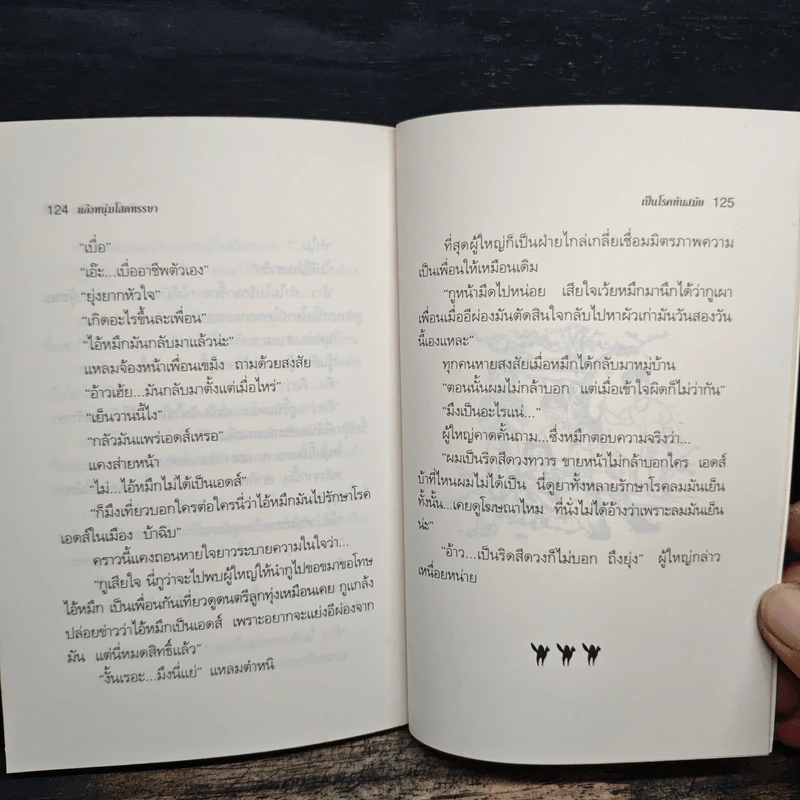 124 แก๊งหนุ่มโสดหรรษา
"เบื่อ"
"เอ๊ะ...เบื่ออาชีพตัวเอง"
"ยุ่งยากหัวใจ"
"เกิดอะไรขึ้นละเพื่อน"
"ไอ้หมึกมันกลับมาแล้วน่ะ"
แหลมจ้องหน้าเพื่อนเขม็ง ถามด้วยสงสัย
"อ้าวเฮ้ย...มันกลับมาตั้งแต่เมื่อไหร่"
"เย็นวานนี้ไง"
"กลัวมันแพร่เอดส์เหรอ"
แคงส่ายหน้า
"ไม่...ไอ้หมึกไม่ได้เป็นเอดส์"
"ก็มึงเที่ยวบอกใครต่อใครนี่ว่าไอ้หมึกมันไปรักษาโรค
เอดส์ในเมือง บ้าฉิบ"
คราวนี้แคงถอนหายใจยาวระบายความในใจว่า...
"กูเสียใจ นี่กูว่าจะไปพบผู้ใหญ่ให้นำกูไปขอขมาขอโทษ
ไอ้หมึก เป็นเพื่อนกันเที่ยวดูดนตรีลูกทุ่งเหมือนเคย กูแกล้ง
ปล่อยข่าวว่าไอ้หมึกเป็นเอดส์ เพราะอยากจะแย่งอีผ่องจาก
มัน แต่นี่หมดสิทธิ์แล้ว"
"งั้นเรอะ...มึงนี่แย่" แหลมตำหนิ
เป็นโรคทันสมัย 125
ที่สุดผู้ใหญ่ก็เป็นฝ่ายไกล่เกลี่ยเชื่อมมิตรภาพความ
เป็นเพื่อนให้เหมือนเดิม
"กูหน้ามืดไปหน่อย เสียใจเว้ยหมึกมานึกได้ว่ากูเผา
เพื่อนเมื่ออีผ่องมันตัดสินใจกลับไปหาผัวเก่ามันวันสองวัน
นี้เองแหละ"
ทุกคนหายสงสัยเมื่อหมึกได้กลับมาหมู่บ้าน
"ตอนนั้นผมไม่กล้าบอก แต่เมื่อเข้าใจผิดก็ไม่ว่ากัน"
"มึงเป็นอะไรแน่..."
ผู้ใหญ่คาดคั้นถาม...ซึ่งหมึกตอบความจริงว่า...
"ผมเป็นริดสีดวงทวาร ขายหน้าไม่กล้าบอกใคร เอดส์
บ้าที่ไหนผมไม่ได้เป็น นี่ดูยาทั้งหลายรักษาโรคลมมันเย็น
ทั้งนั้น...เคยดูโฆษณาไหม ที่นั่งไม่ได้อ้างว่าเพราะลมมันเย็น
น่ะ"
"อ้าว...เป็นริดสีดวงก็ไม่บอก ถึงยุ่ง" ผู้ใหญ่กล่าว
เหนื่อยหน่าย